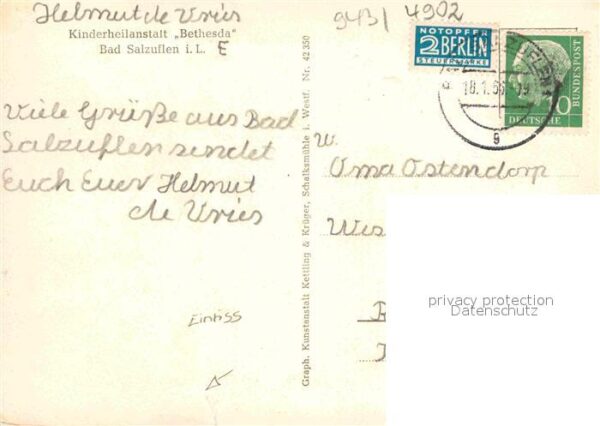 Helmut de Vries
943/ 4902
Kinderheilanstalt „Bethesda"
Bad Salzuflen i. L.
E
NOTOPFER
2 BERLIN
STEUERMARKE
18.1.56-09
g
DEUTSCHE
BUNDESPOST
Viele Grüße aus Bad
Salzuflen sendet
Euch Euer Helmut
de Vries
W.
Oma Ostendorp
Wes
Graph. Kunstanstalt Kettling & Krüger, Schalksmühle i. Westf. Nr. 42 350
Einriss
privacy protection
Datenschutz